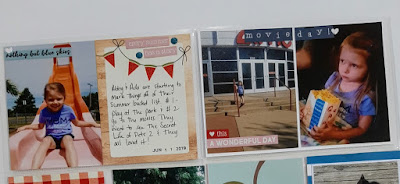 nothing but blue skies
Abby & Ava are starting to
mark things off of their
summer bucket list. #1:
play at the park & #2
go to the movies. They
went to see The Secret
Life of Pets 2 & They
all loved it!
JUN
2019
movie day!
this
A WONDERFUL DAY